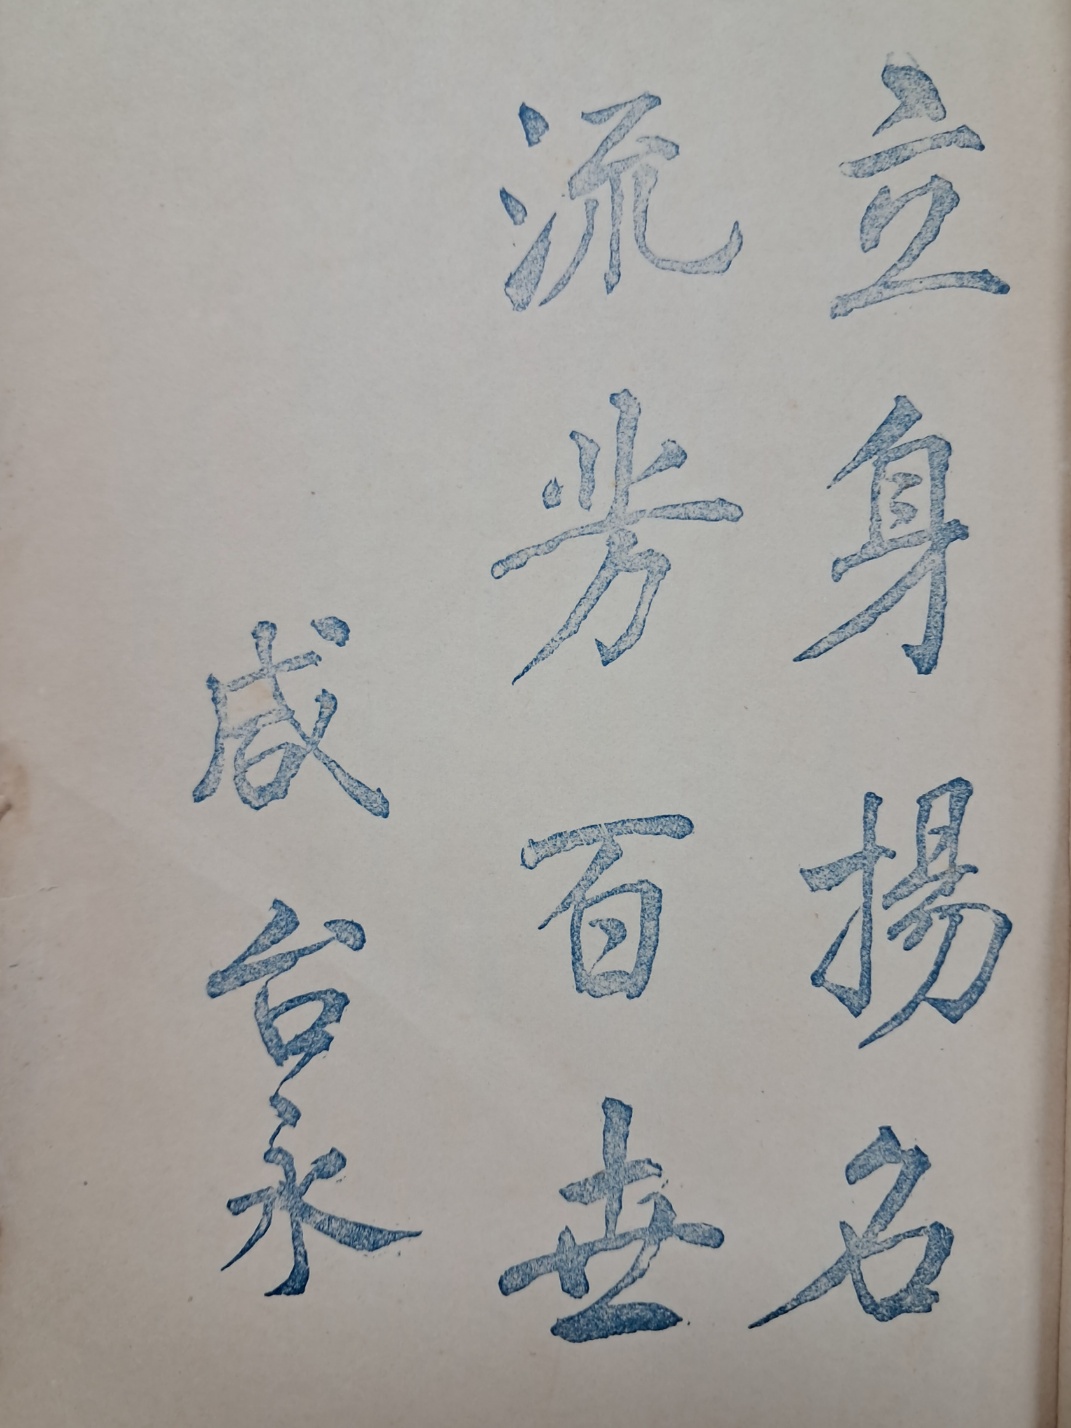 立身揚名
流芳百世
咸台永